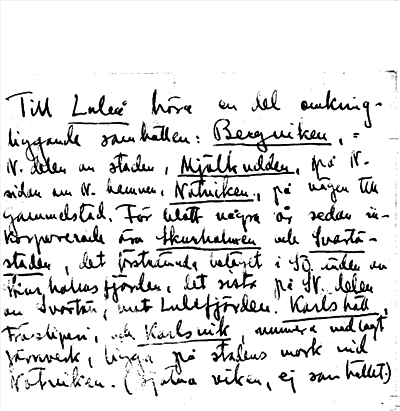 Till Luleå höra en del omkring-
liggande samhällen: Bergviken, =
N. delen av staden, Mjölkudden, på N.
sidan om N. hamnen, Notviken, på vägen till
Gammelstad. För blott några år sedan in-
korporerade äro Skurholmen och Svartö-
staden, det förstnämnda beläget i SÖ. änden av
fjärden, det sista på SV. delen
av Svartön, mot Lulefjärden. Karlshäll,
Träsliperi, och Karlsvik, numera nedlagt
järnverk, ligga på stadens mark vid
Notviken. (Själva viken, ej samhället.)